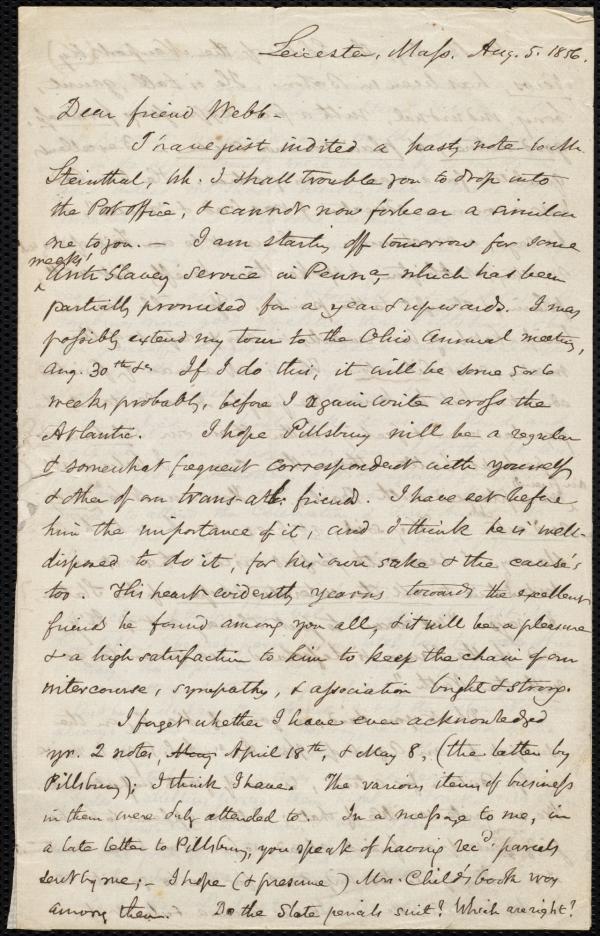 Leicester, Mass. Aug. 5. 1856.
Dear friend Webb -
I have just indited a hasty note to Mr.
Steinthal, wh. I shall trouble you to drop into
the Post office, & cannot now forbear a similar
one to you. — I am starting off tomorrow for some
weeks'
Anti Slavery Service in Penna, which has been
partially promised for a year & upwards. I may
possibly extend my tour to the Ohio Annual meeting,
Aug. 30th &c. If I do this, it will be some 5 or 6
weeks probably, before I again write across the
Atlantic. I hope Pillsbury will be a regular
& somewhat frequent correspondent with yourself
& other of our trans-atl: friends. I have set before
him the importance of it, and I think he is well-
disposed to do it, for his own sake & the cause's
too. His heart evidently yearns towards the excellent
friends he found among you all, & it will be a pleasure
& a high satisfaction to him to keep the chain of our
intercourse, sympathy, & association bright & strong.
I forget whether I have ever acknowledged
yr. 2 notes, April 18th, & May 8, (the latter by
Pillsbury); I think I have. The various items of business
in them were duly attended to. In a message to me, in
a late letter to Pillsbury, you speak of having recd. parcels
sent by me; - I hope (& presume) Mrs. Child's book was
among them. Do the slate pencils suit? Which are right?